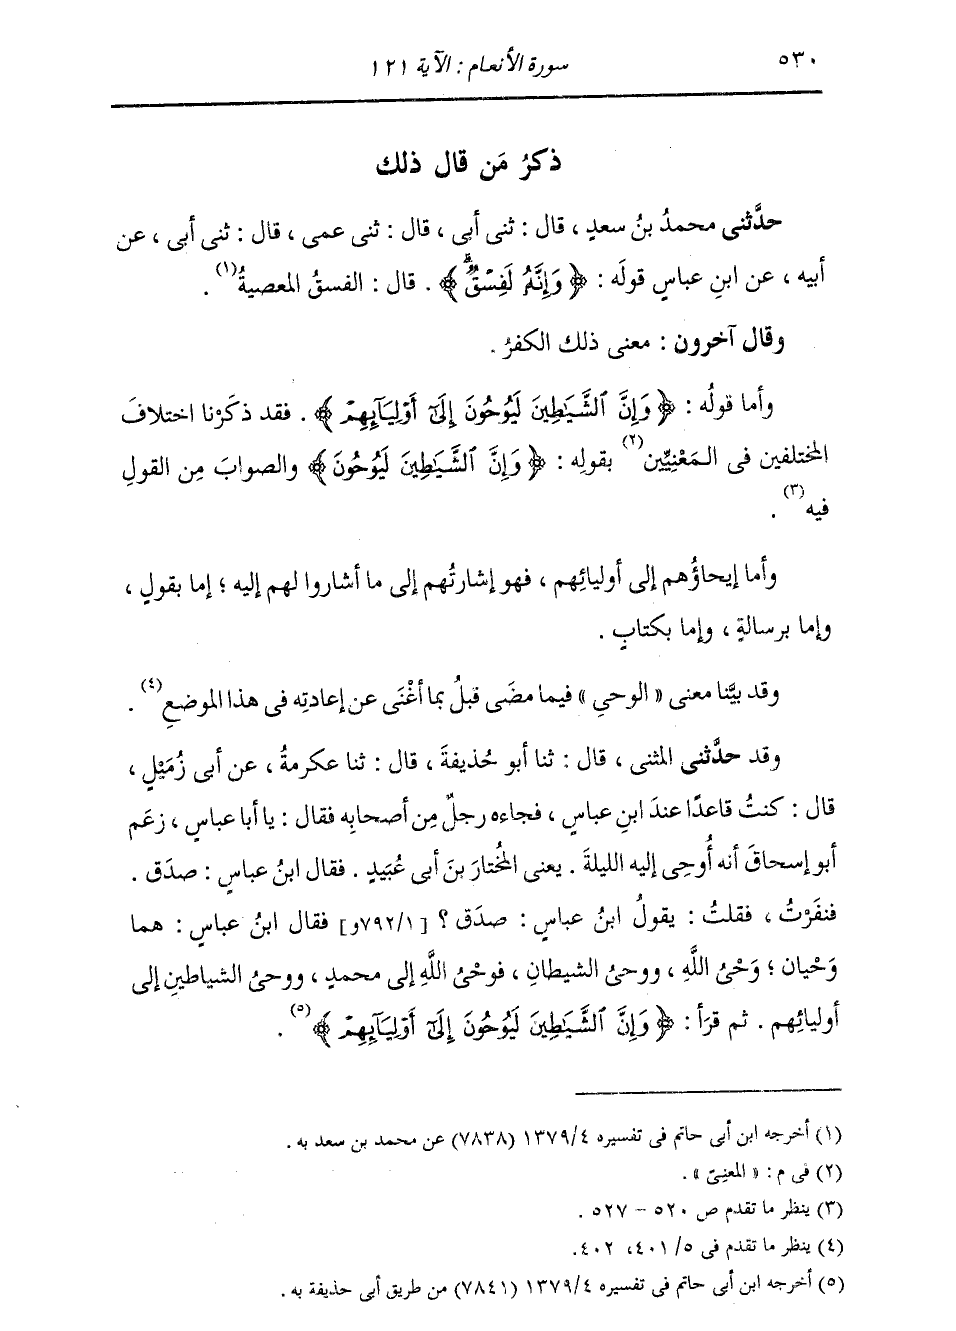 ٥٣٠
سورة الأنعام : الآية ١٢١
ذكرُ مَن قال ذلك
حدَّثنى محمدُ بنُ سعدٍ ، قال : ثنى أبى ، قال : ثنى عمى ، قال : ثنى أبى ، عن
أبيه ، عن ابنِ عباسٍ قولَه : ﴿ وَإِنَّهُ لَفِسْقٌ ﴾ . قال : الفسقُ المعصيةُ(١) .
وقال آخرون : معنى ذلك الكفرُ .
وأما قولُه : ﴿ وَإِنَّ ٱلشَّيَٰطِينَ لَيُوحُونَ إِلَىٰٓ أَوْلِيَآئِهِمْ ﴾ . فقد ذكَرْنا اختلافَ
المختلفين فى المَعْنِيِّين(٢) بقولِه : ﴿ وَإِنَّ ٱلشَّيَٰطِينَ لَيُوحُونَ ﴾ والصوابَ مِن القولِ
فيه(٣) .
وأما إيحاؤُهم إلى أوليائِهم ، فهو إشارتُهم إلى ما أشاروا لهم إليه ؛ إما بقولٍ ،
وإما برسالةٍ ، وإما بكتابٍ .
وقد بيَّنا معنى « الوحىِ » فيما مضَى قبلُ بما أغْنَى عن إعادتِه فى هذا الموضعِ(٤) .
وقد حدَّثنى المثنى ، قال : ثنا أبو حُذيفةَ ، قال : ثنا عكرمةُ ، عن أبى زُمَيْلٍ ،
قال : كنتُ قاعدًا عندَ ابنِ عباسٍ ، فجاءه رجلٌ مِن أصحابِه فقال : يا أبا عباسٍ ، زعَم
أبو إسحاقَ أنه أُوحِى إليه الليلةَ . يعنى المُختارَ بنَ أبى عُبَيدٍ . فقال ابنُ عباسٍ : صدَق .
فنفَرْتُ ، فقلتُ : يقولُ ابنُ عباسٍ : صدَق ؟ [٧٩٢/١و] فقال ابنُ عباسٍ : هما
وَحْيان ؛ وَحْىُ اللَّهِ ، ووحىُ الشيطانِ ، فوحْىُ اللَّهِ إلى محمدٍ ، ووحىُ الشياطينِ إلى
أوليائِهم . ثم قرَأ : ﴿ وَإِنَّ ٱلشَّيَٰطِينَ لَيُوحُونَ إِلَىٰٓ أَوْلِيَآئِهِمْ ﴾(٥) .
(١) أخرجه ابن أبى حاتم فى تفسيره ١٣٧٩/٤ (٧٨٣٨) عن محمد بن سعد به .
(٢) فى م : « المعنىّ » .
(٣) ينظر ما تقدم ص ٥٢٠ – ٥٢٧ .
(٤) ينظر ما تقدم فى ٥/ ٤٠١، ٤٠٢.
(٥) أخرجه ابن أبى حاتم فى تفسيره ١٣٧٩/٤ (٧٨٤١) من طريق أبى حذيفة به .